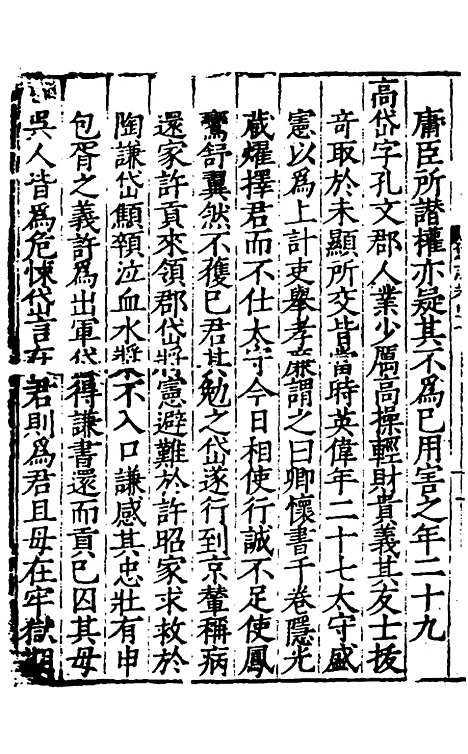 庸臣所譖權亦疑其不爲已用害之年二十九
高岱字孔文郡人業少厲高操輕財貴義其友士拔
竒取於未顯所交皆當時英偉年二十七太守盛
憲以爲上計吏舉孝廉謂之曰卿懷書千卷隱光
藏燿擇君而不仕太守今日相使行誠不足使鳳
鸞舒翼然不獲已君其勉之岱遂行到京輦稱病
還家許貢來領郡岱將憲避難於許昭家求救於
陶謙岱顦顇泣血水漿不入口謙感其忠壯有申
包胥之義許爲出軍岱得謙書還而貢已囚其母
吳人皆爲危悚岱言在君則爲君且母在牢獄期